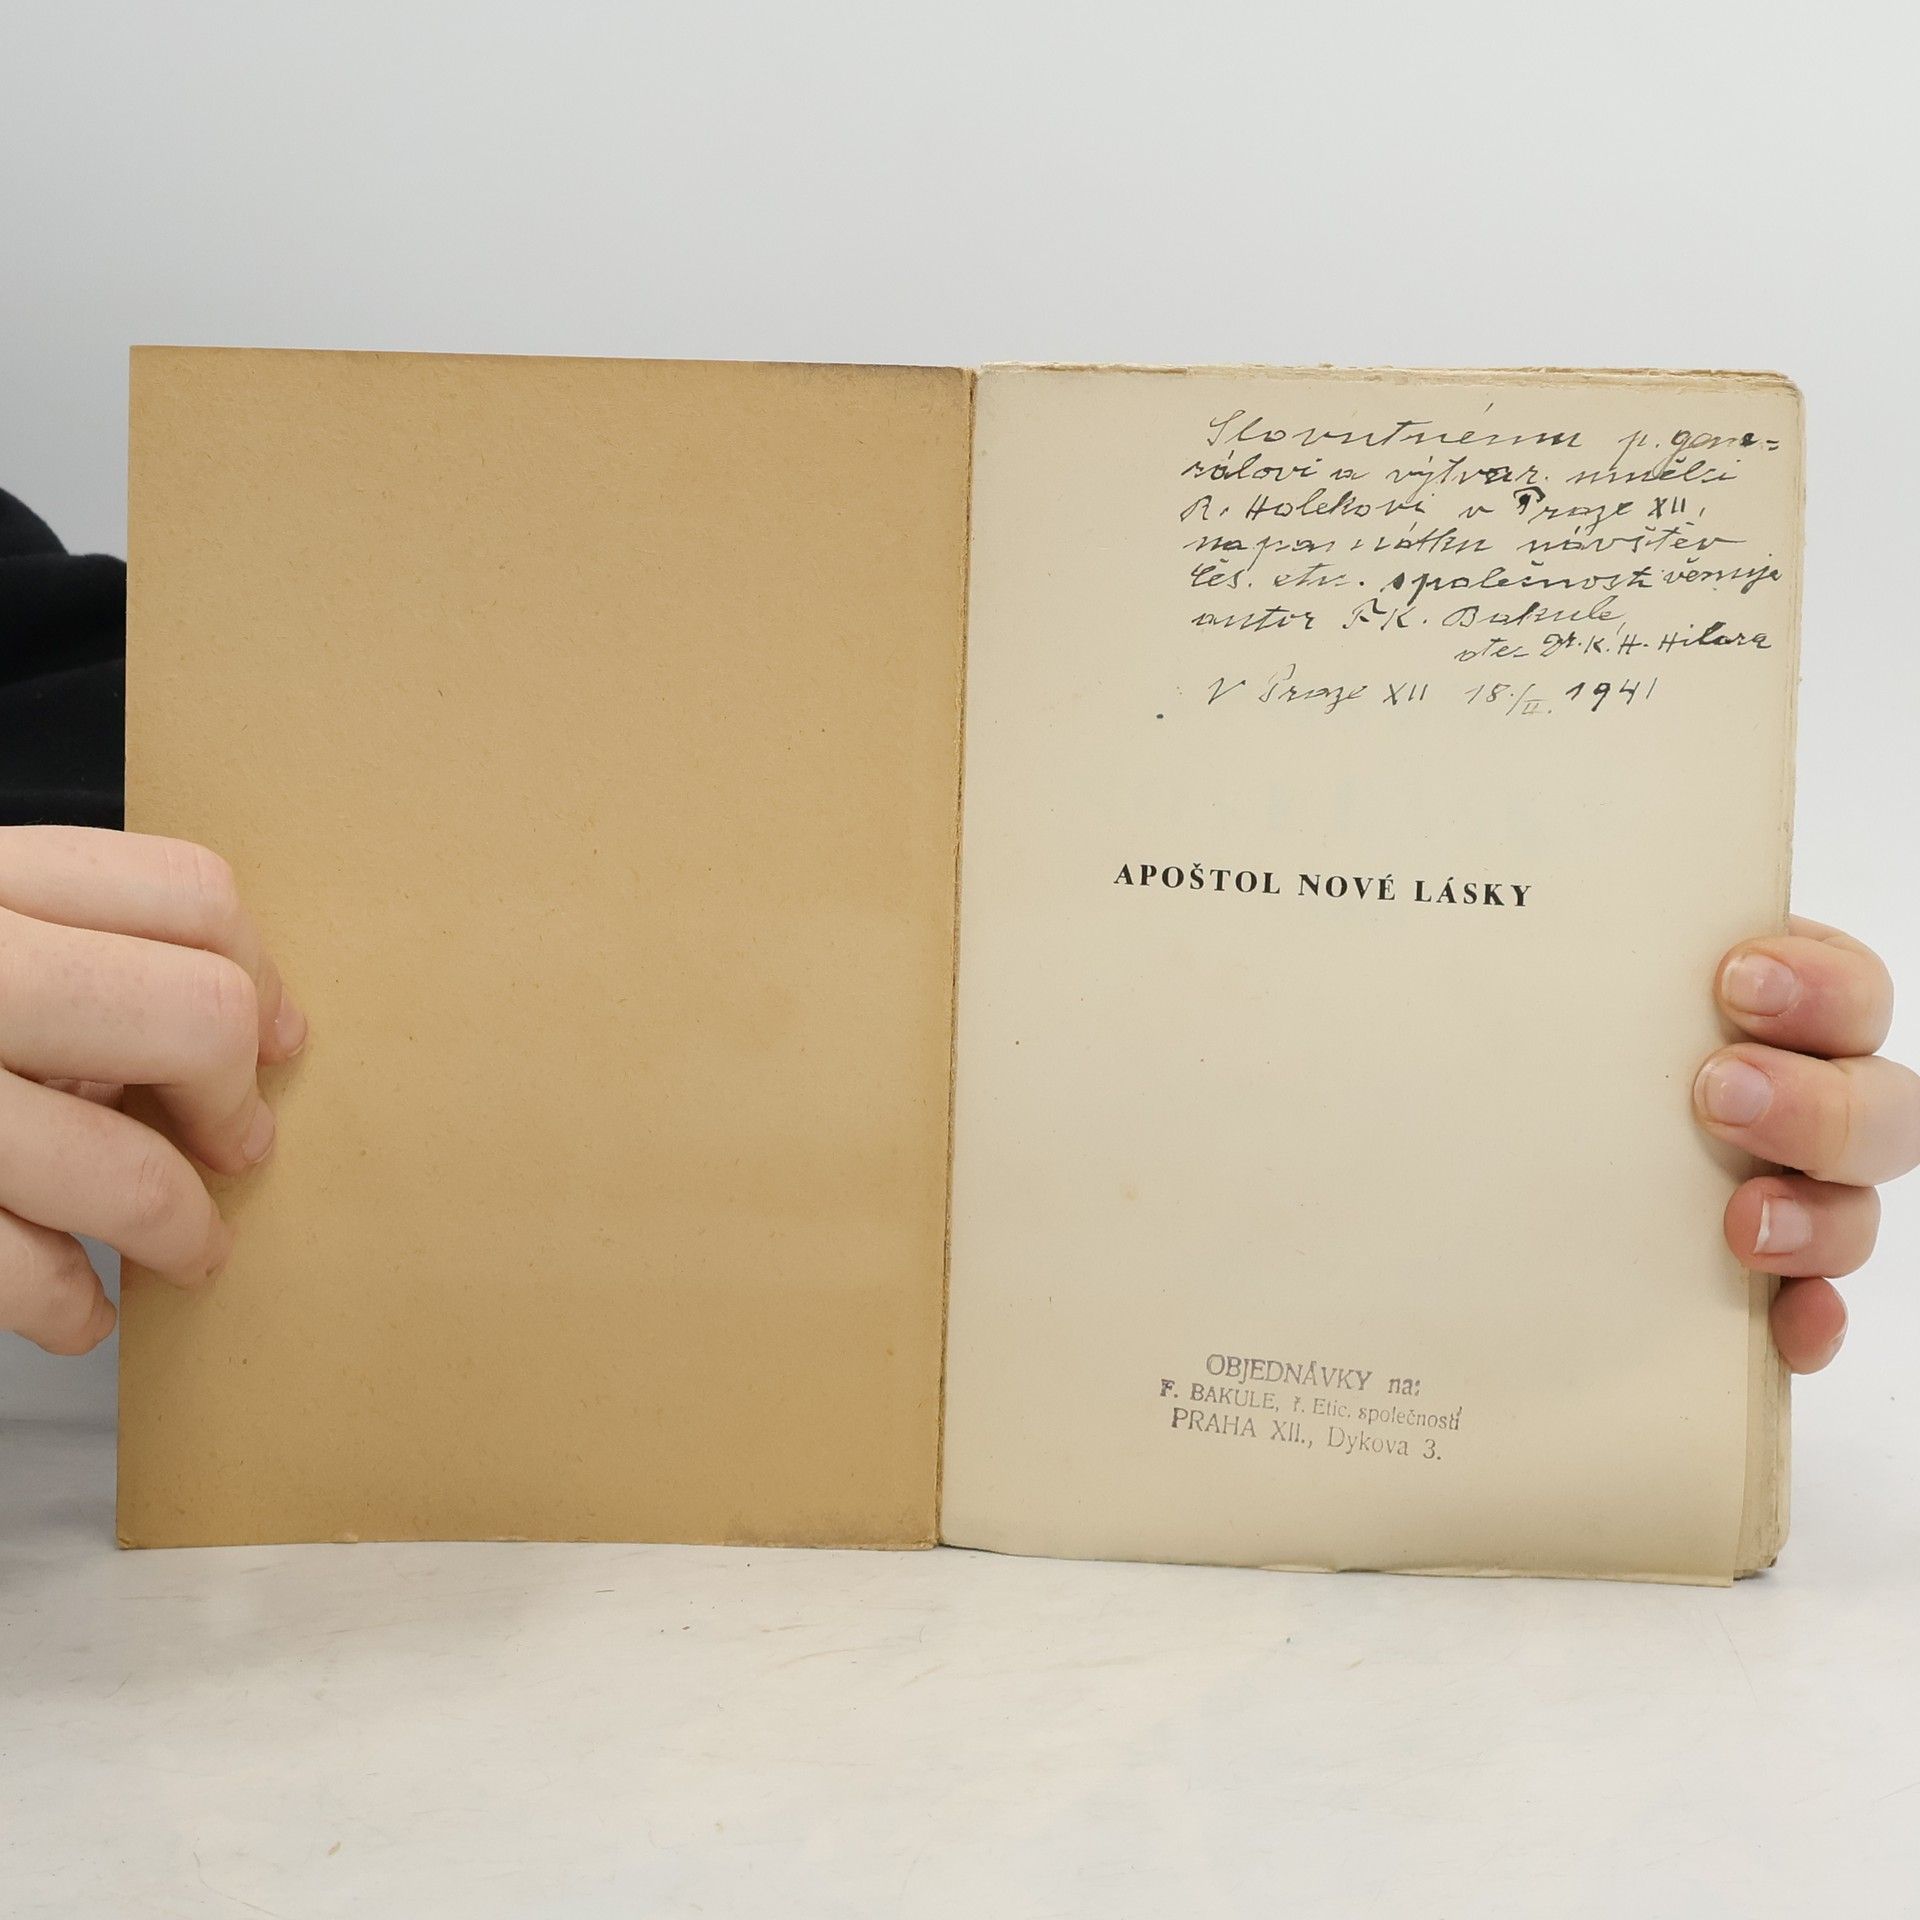 Slovutnému p. gene-
rálovi a výtvar. umělci
R. Holekovi v Praze XII,
na památku návštěv
Čes. etic. společnosti věnuje
autor F.K. Bakule,
otec Dr. K. H. Hilara
V Praze XII 18./II. 1941
APOŠTOL NOVÉ LÁSKY
OBJEDNÁVKY na:
F. BAKULE, ř. Etic. společnosti
PRAHA XII., Dykova 3.